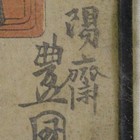 陽齋
豊國